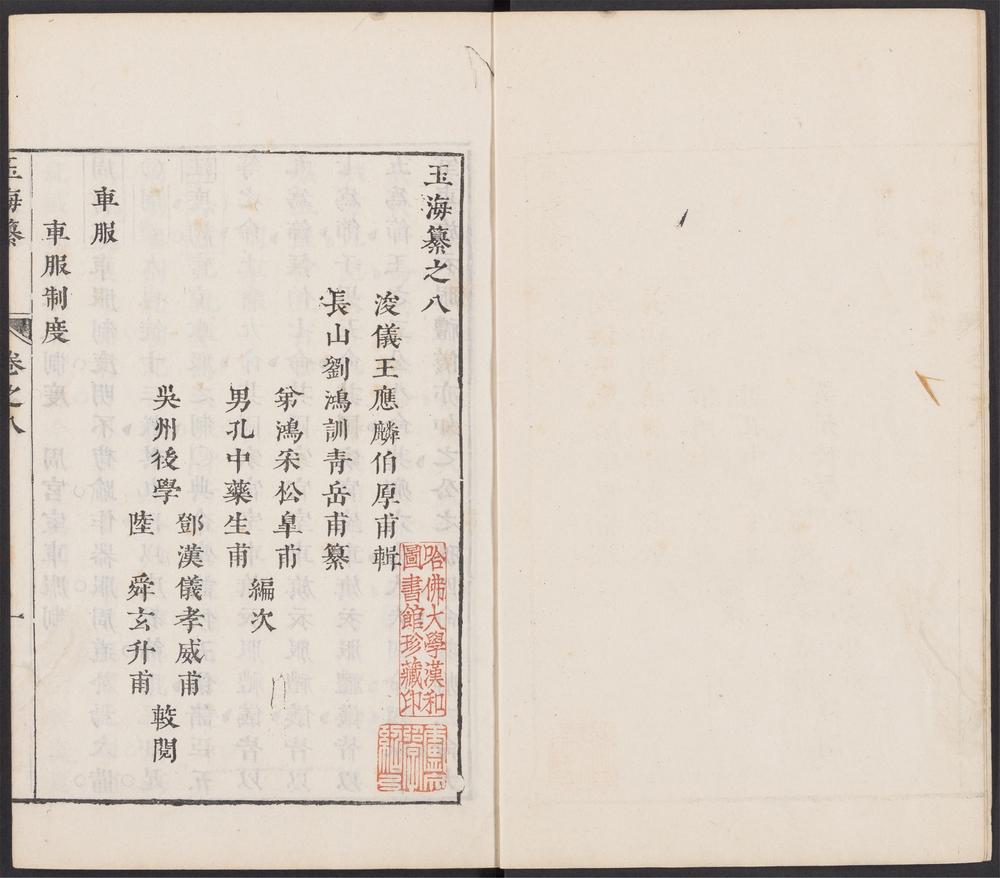 玉海纂之八
浚儀王應麟伯厚甫輯
長山劉鴻訓青岳甫纂
弟鴻宋松皐甫
男孔中藥生甫
編次
吳州後學
鄧漢儀孝威甫
陸舜玄升甫
較閱
車服
車服制度
玉海纂
卷之八
一
哈佛大學漢和
圖書館珍藏印